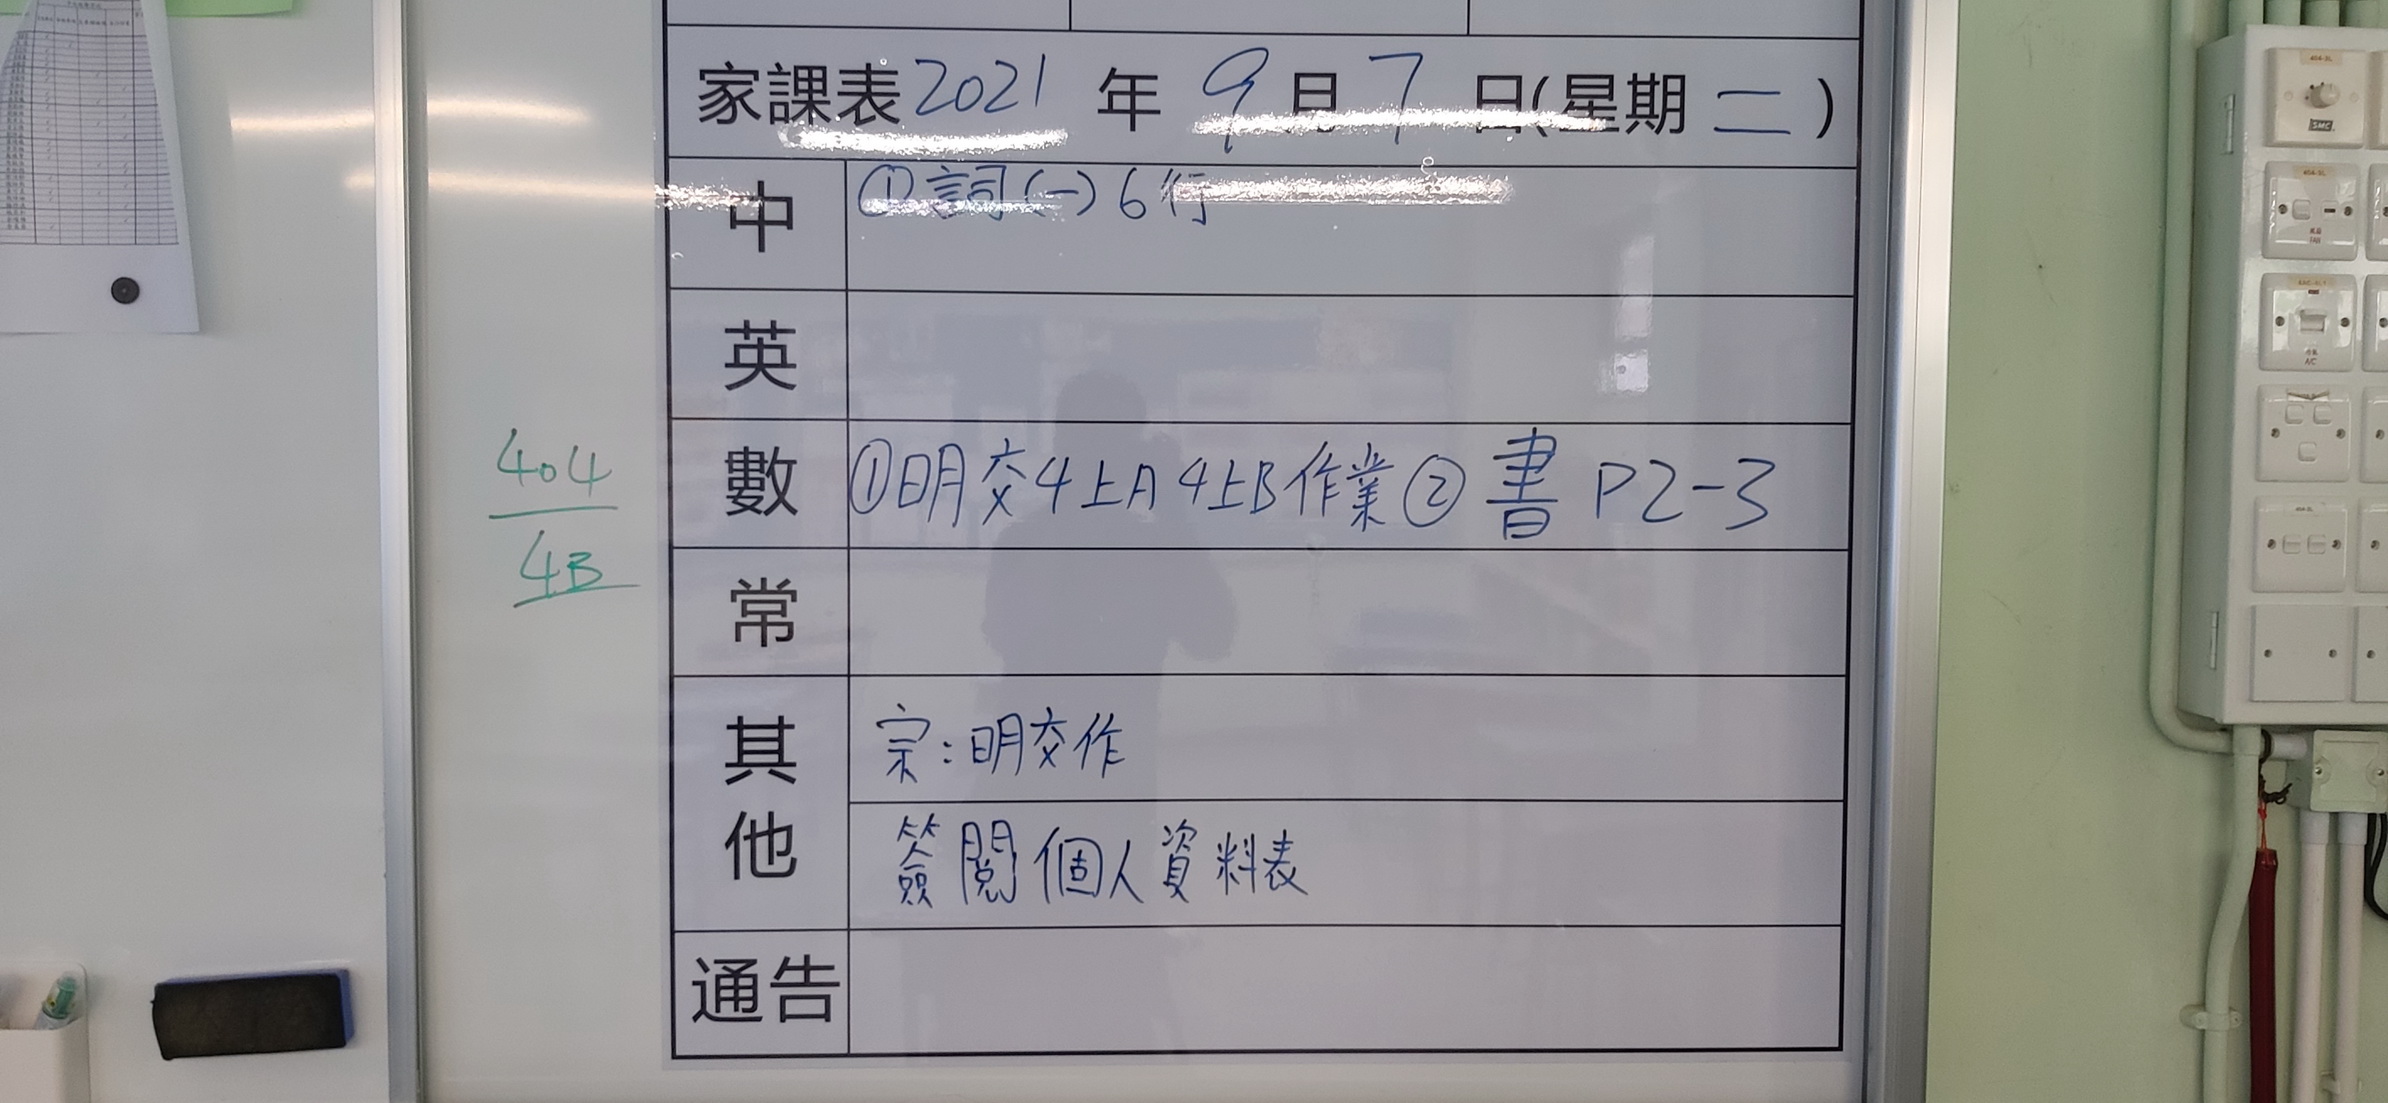 家課表2021年9月7日(星期二)
中 ①詞(一)6行
英
數 ①明交4上A 4上B作業②書 P2-3
404
4B
常
其他
宗:明交作
簽閱個人資料表
通告